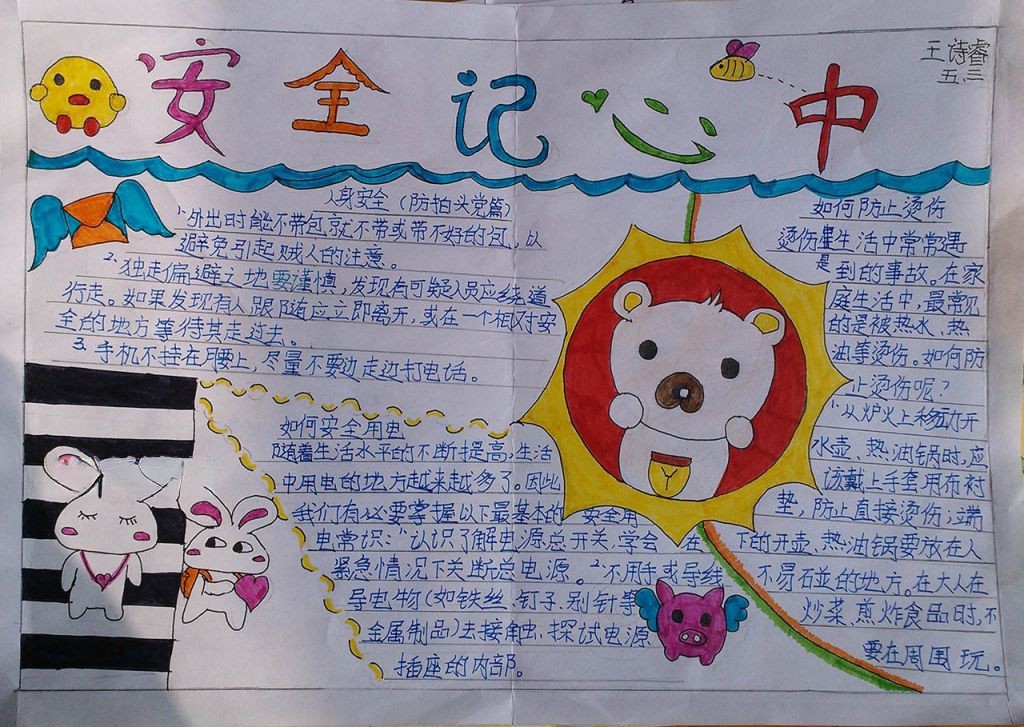 安全记心中
王诗睿
五.三
人身安全(防拍头党篇)
1.外出时能不带包就不带或带不好的包,以
避免引起贼人的注意。
2.独走偏避之地要谨慎,发现有可疑人员应绕道
行走。如果发现有人跟随应立即离开,或在一个相对安
全的地方等待其走过去。
3.手机不挂在腰上,尽量不要边走边打电话。
如何安全用电
随着生活水平的不断提高,生活
中用电的地方越来越多了。因此
我们有必要掌握以下最基本的安全用
电常识:1.认识了解电源总开关,学会在
紧急情况下关断总电源。2.不用手或导线
导电物(如铁丝、钉子、别针等
金属制品)去接触、探试电源
插座的内部。
如何防止烫伤
烫伤是生活中常常遇
到的事故。在家
庭生活中,最常见
的是被热水、热
油等烫伤。如何防
止烫伤呢?
1.从炉火上移动开
水壶、热油锅时,应
该戴上手套用布衬
垫,防止直接烫伤;端
下的开壶、热油锅要放在人
不易碰的地方。在大人在
炒菜、煎炸食品时,不
要在周围玩。